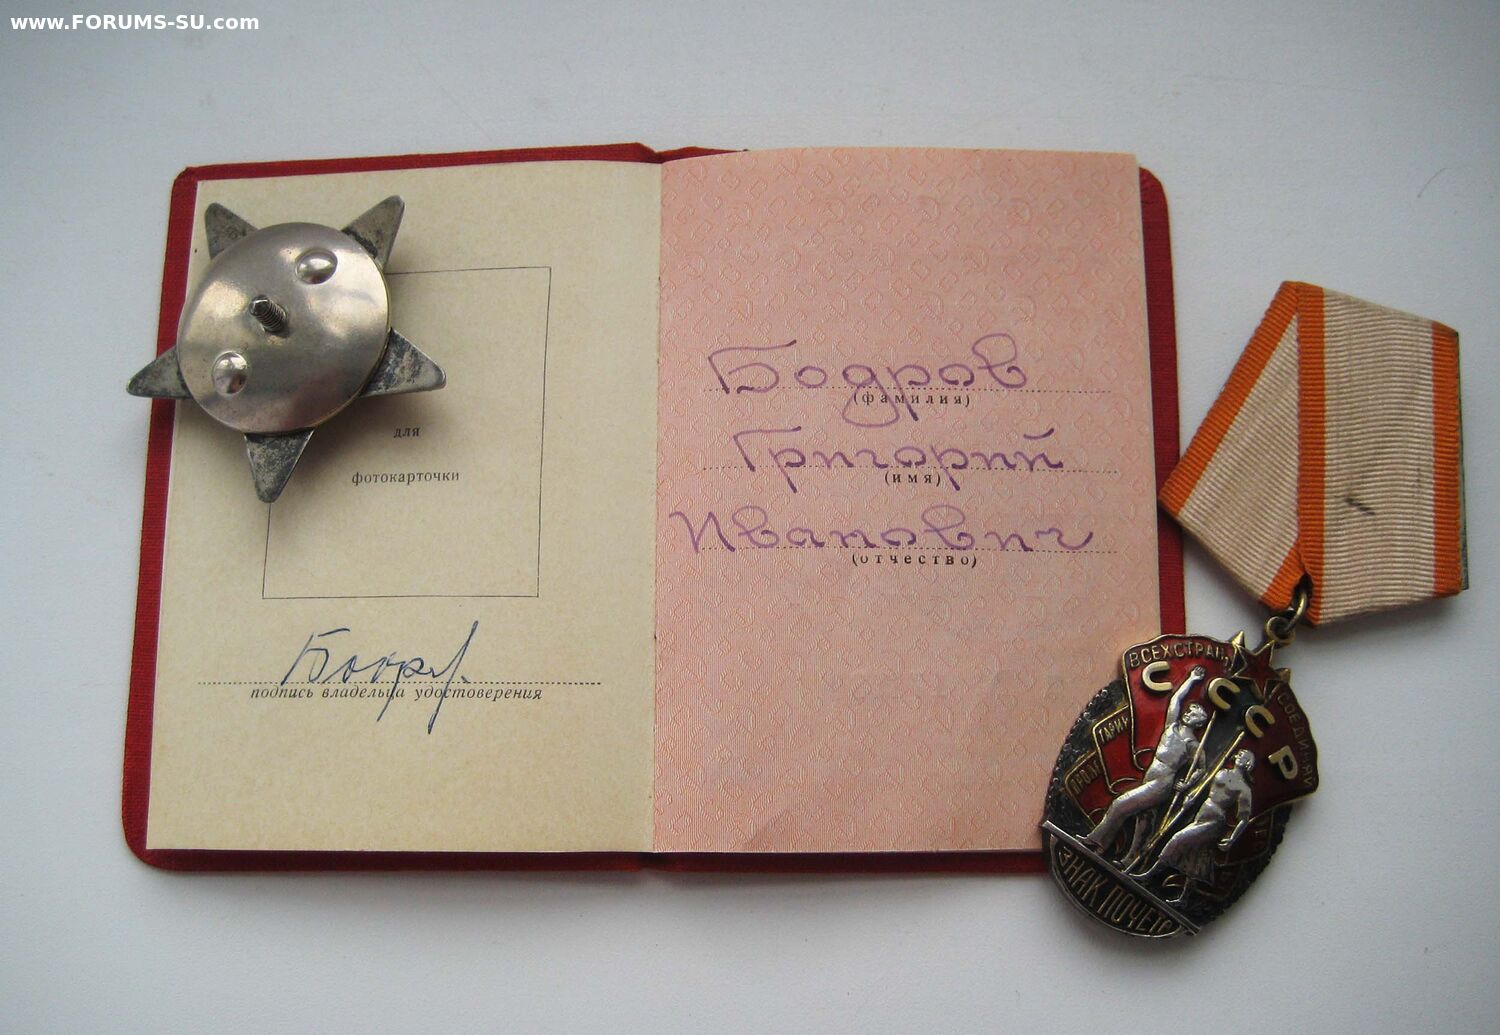 www.FORUMS-SU.com
для
фотокарточки
подпись владельца удостоверения
Бодров
(фамилия)
Григорий
(имя)
Иванович
(отчество)
ВСЕХ СТРАН
СОЕДИНЯЙ
ПРОЛЕ
ТАРИИ
СССР
ЗНАК ПОЧЕТА